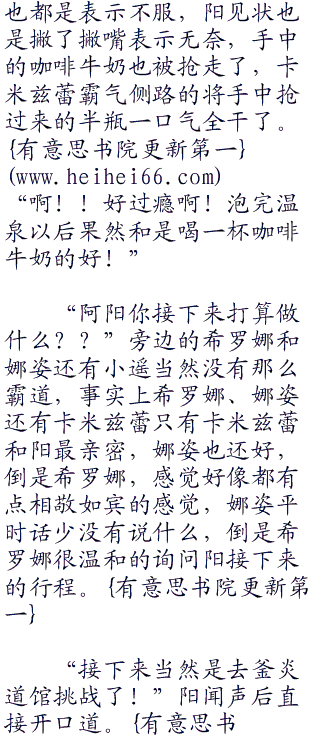 也都是表示不服，阳见状也
是撇了撇嘴表示无奈，手中
的咖啡牛奶也被抢走了，卡
米兹蕾霸气侧路的将手中抢
过来的半瓶一口气全干了。
{有意思书院更新第一}
(www.heihei66.com)
“啊！！好过瘾啊！泡完温
泉以后果然和是喝一杯咖啡
牛奶的好！”
“阿阳你接下来打算做
什么？？”旁边的希罗娜和
娜姿还有小遥当然没有那么
霸道，事实上希罗娜、娜姿
还有卡米兹蕾只有卡米兹蕾
和阳最亲密，娜姿也还好，
倒是希罗娜，感觉好像都有
点相敬如宾的感觉，娜姿平
时话少没有说什么，倒是希
罗娜很温和的询问阳接下来
的行程。{有意思书院更新第
一}
“接下来当然是去釜炎
道馆挑战了！”阳闻声后直
接开口道。{有意思书